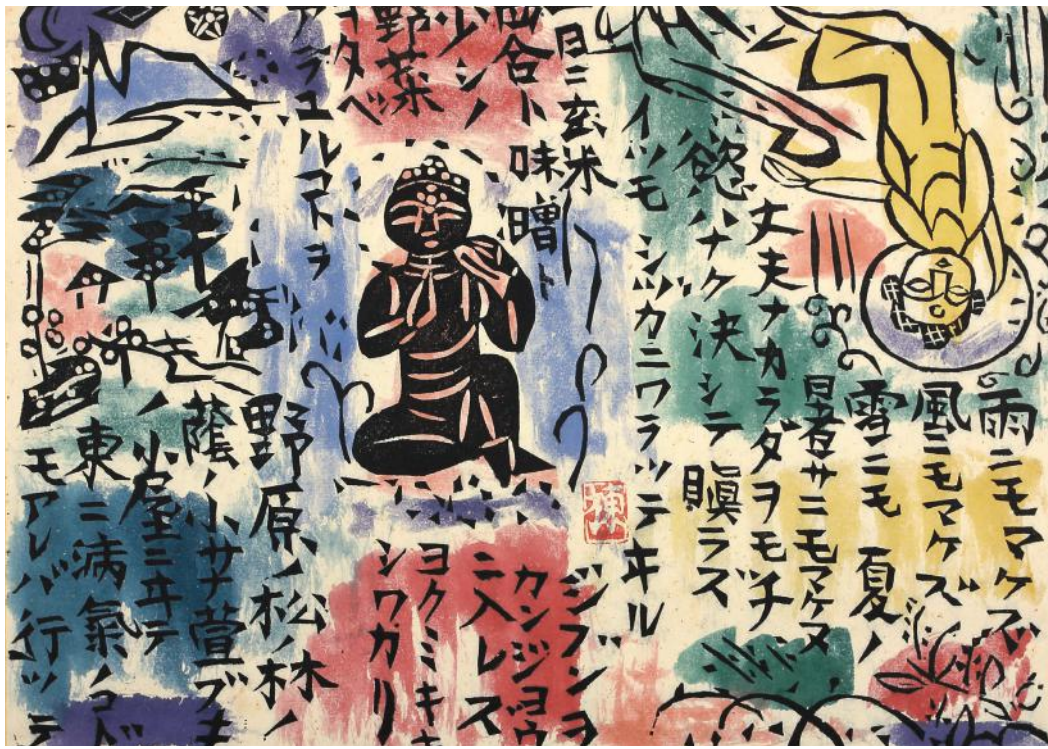 雨ニモマケズ
風ニモマケズ
雪ニモ夏ノ
暑サニモマケヌ
丈夫ナカラダヲモチ
慾ハナク決シテ瞋ラズ
イツモシヅカニワラッテヰル
日ニ玄米
四合ト味噌ト
少シノ
野菜
ヲタベ
アラユルコトヲ
ジブンヲ
カンジョウ
ニ入レズ
ヨクミキキ
シワカリ
野原ノ松ノ林ノ
蔭ノ小サナ萱ブキ
ノ小屋ニヰテ
東ニ病氣ノコド
モアレバ行ッテ